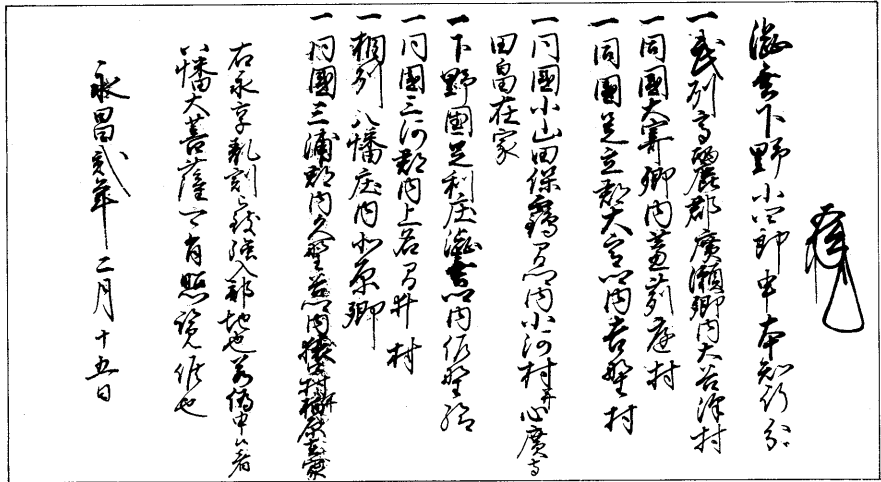 澁垂下野小四郎申本知行分
一武刕高麗郡廣瀬郷内大谷澤村
一同國大寄郷内菱苅庭村
一同國足立郡大宮内吉野村
一同國小山田保鶴間内小河村并心廣寺
田畠在家
一下野國足利庄澁垂内佐野給
一同國三河郡内上石見井村
一相刕八幡庄内北原郷
一同國三浦郡内久野谷内村并在家
右永享乱刻致強入部地也若偽申候者
八幡大菩薩可有照覧候也
永昌貳年二月十五日